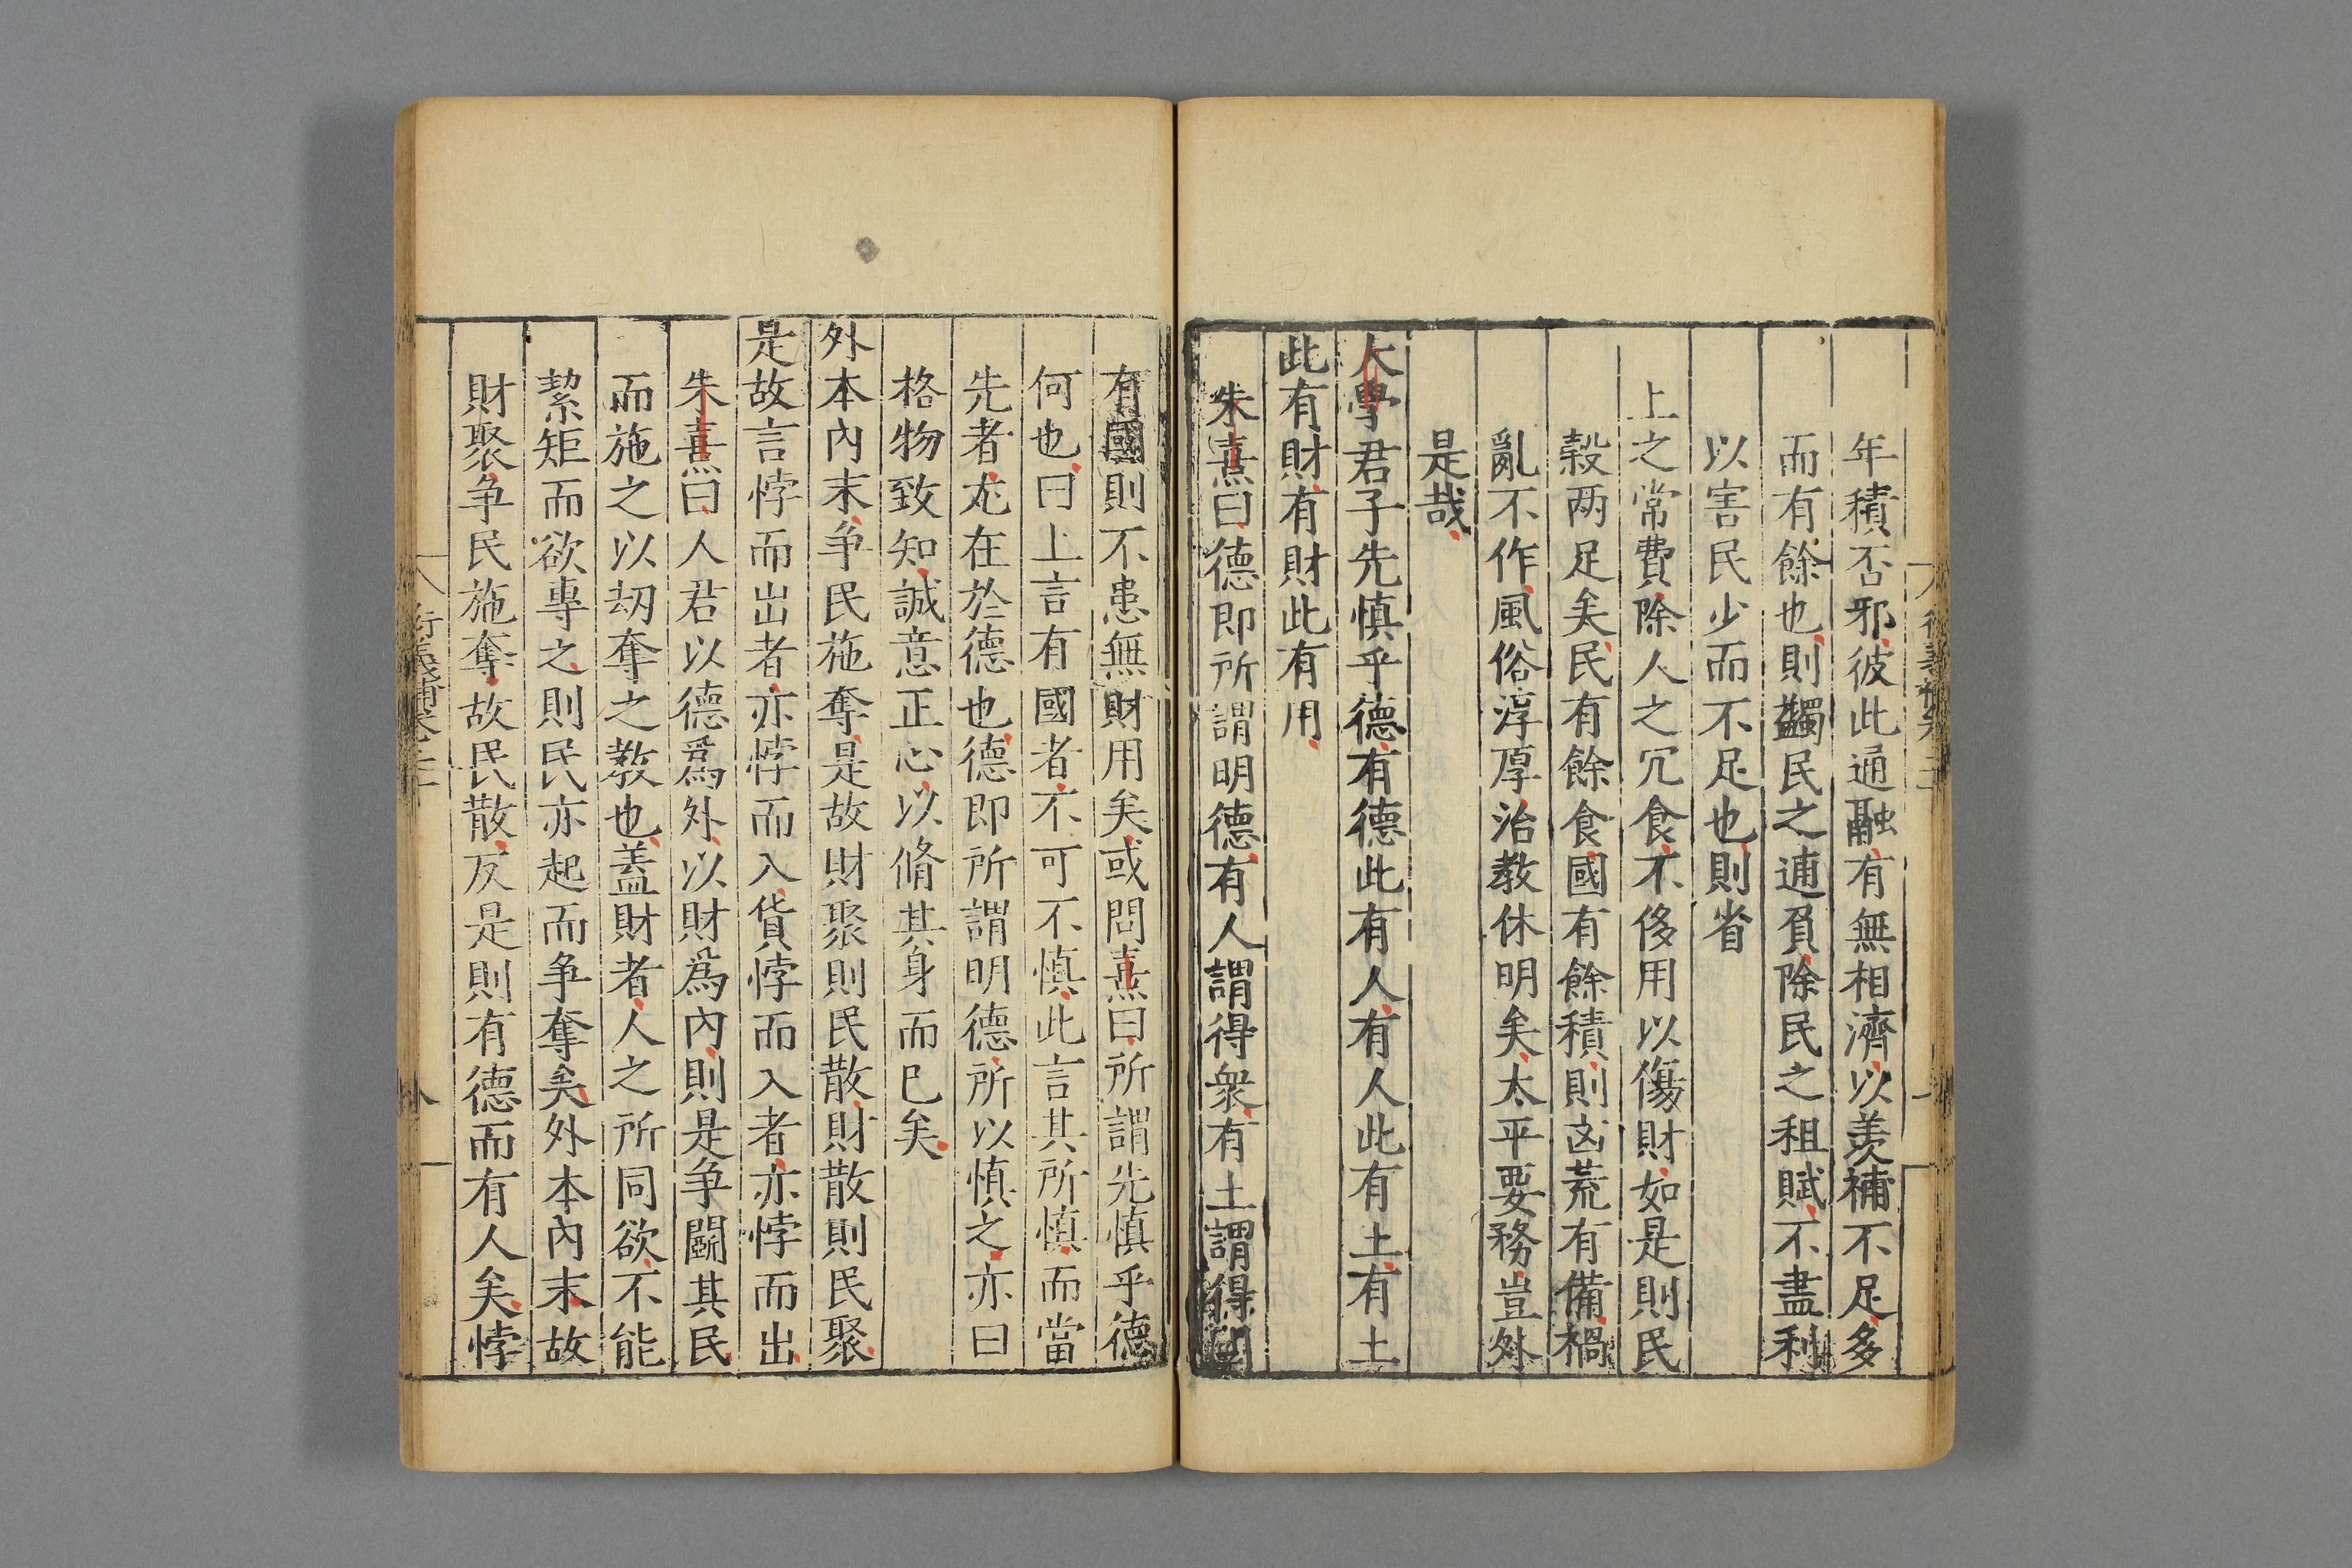 年積否邪彼此通融有無相濟以羡補不足多
而有餘也則蠲民之逋負除民之租賦不盡利
以害民少而不足也則省
上之常費除人之冗食不侈用以傷財如是則民
穀两足矣民有餘食國有餘積則凶荒有備禍
亂不作風俗淳厚治教休明矣太平要務豈外
是哉
大學君子先慎乎德有德此有人有人此有土有土
此有財有財此有用
朱熹曰德即所謂明德有人謂得衆有土謂得國
有國則不患無財用矣或問熹曰所謂先慎乎德
何也曰上言有國者不可不慎此言其所慎而當
先者尤在於德也德即所謂明德所以慎之亦曰
格物致知誠意正心以脩其身而已矣
外本內末争民施奪是故財聚則民散財散則民聚
是故言悖而出者亦悖而入貨悖而入者亦悖而出
朱熹曰人君以德爲外以財爲內則是争鬭其民
而施之以刼奪之教也蓋財者人之所同欲不能
絜矩而欲專之則民亦起而争奪矣外本內末故
財聚争民施奪故民散反是則有德而有人矣悖